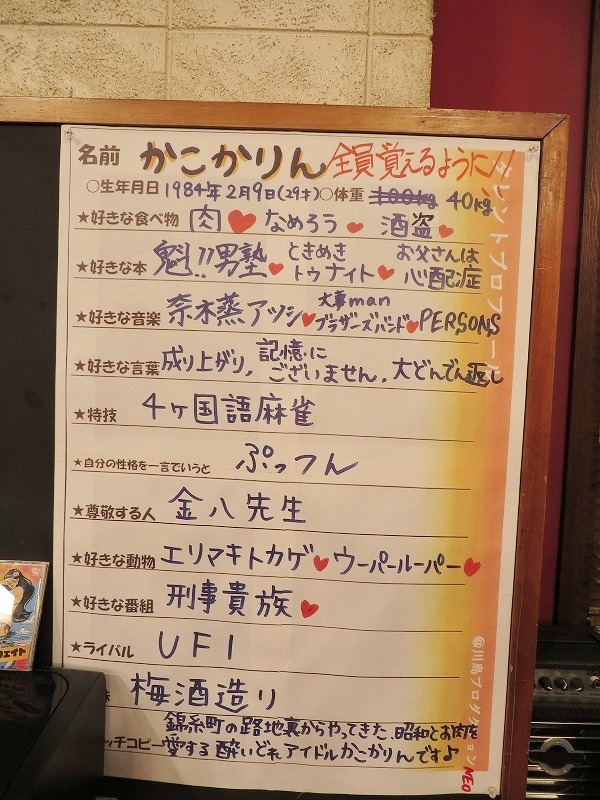 名前 かこかりん 全員覚えるように!!
○生年月日 1984年2月9日(29才) ○体重 100kg 40kg
★好きな食べ物 肉♥ なめろう♥ 酒盗♥
★好きな本 魁!!男塾♥ ときめきトゥナイト♥ お父さんは心配症
★好きな音楽 奈木蒸アツシ♥大事manブラザーズバンド♥PERSONS
★好きな言葉 成り上がり, 記憶にございません, 大どんでん返し
★特技 4ヶ国語麻雀
★自分の性格を一言でいうと ぷっつん
★尊敬する人 金八先生
★好きな動物 エリマキトカゲ♥ウーパールーパー♥
★好きな番組 刑事貴族♥
★ライバル UFI
梅酒造り
ッチコピー 錦糸町の路地裏からやってきた、昭和とお肉を
愛する 酔いどれアイドルかこかりんです♪
タレントプロフィール
@川島プロダクションNEO